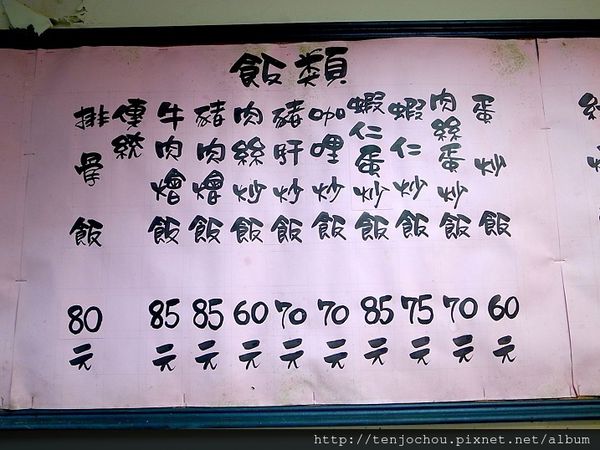 飯類
蛋炒飯 60元
肉絲蛋炒飯 70元
蝦仁炒飯 75元
蝦仁蛋炒飯 85元
咖哩炒飯 70元
豬肝炒飯 70元
肉絲炒飯 60元
豬肉燴飯 85元
牛肉燴飯 85元
傳統
排骨飯 80元
http://tenjochou.pixnet.net/album